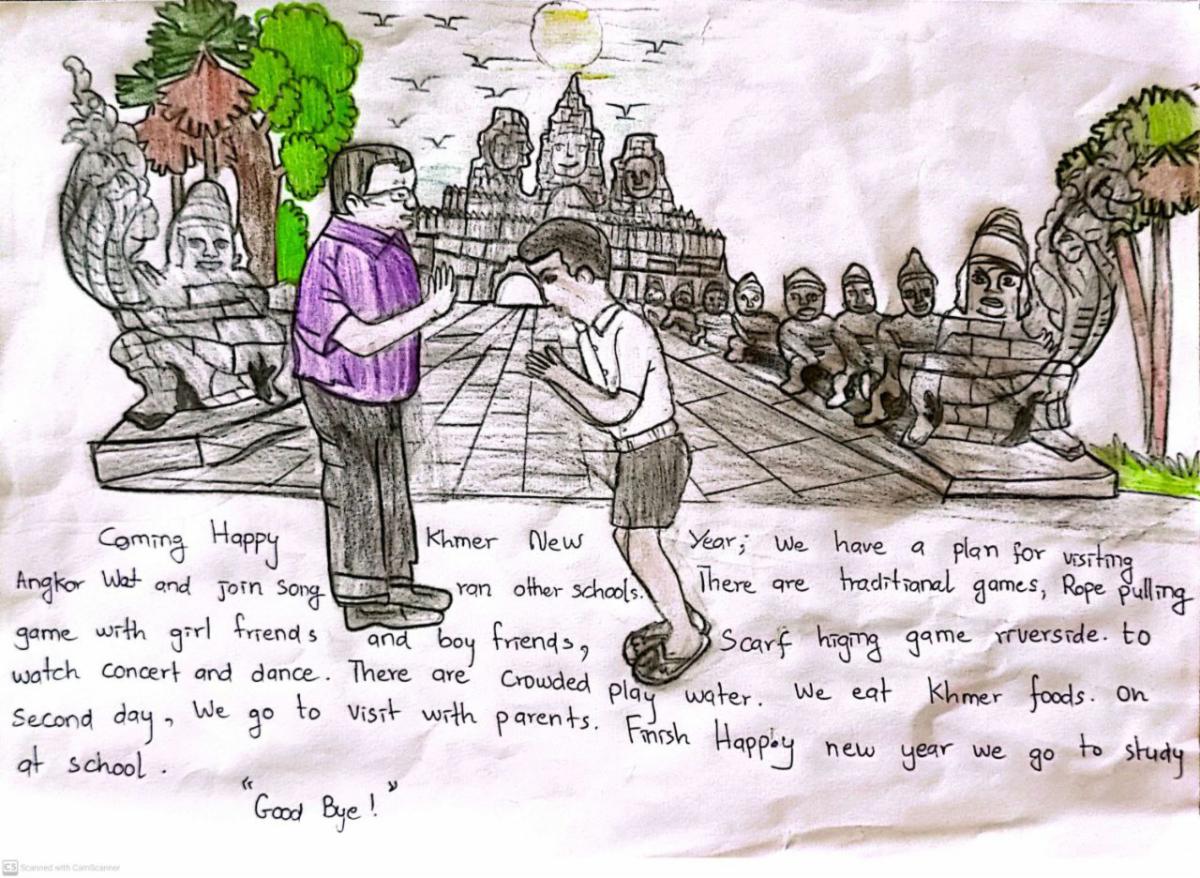 Coming Happy Khmer New Year; We have a plan for visiting
Angkor Wat and join song ran other schools. There are traditional games, Rope pulling
game with girl friends and boy friends, Scarf higing game riverside. to
watch concert and dance. There are crowded play water. We eat Khmer foods. On
Second day, We go to visit with parents. Finish Happy new year we go to study
at school.
"Good Bye!"
CS Scanned with CamScanner